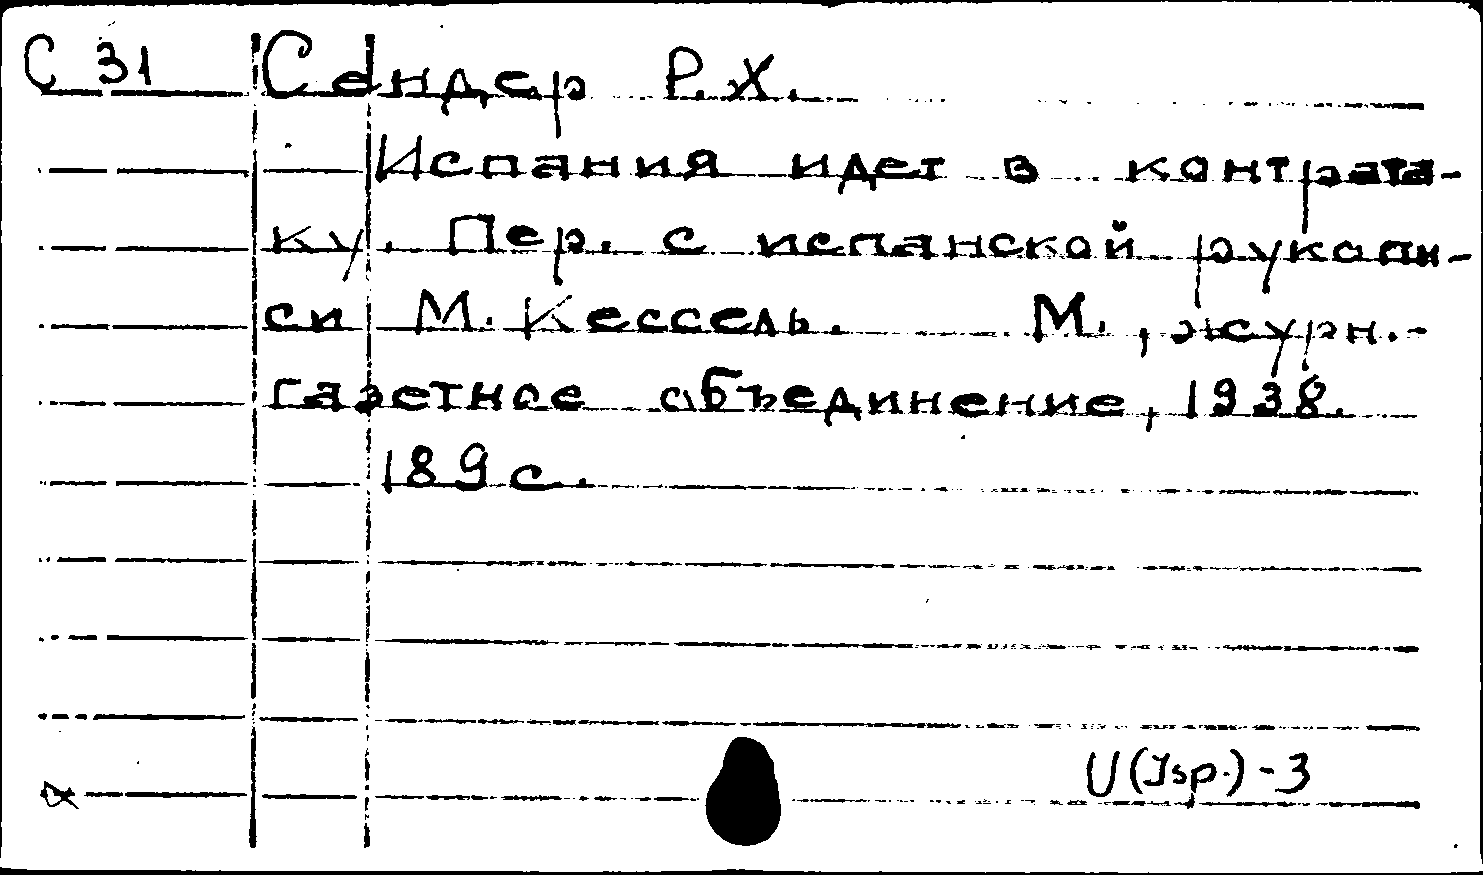 С 31 Сендер Р.Х.
Испания идет в контрата-
ку. Пер. с испанской рукопи-
си М. Кессель. М., журн.-
газетное объединение, 1938.
189 с.
U(Isp.)-3